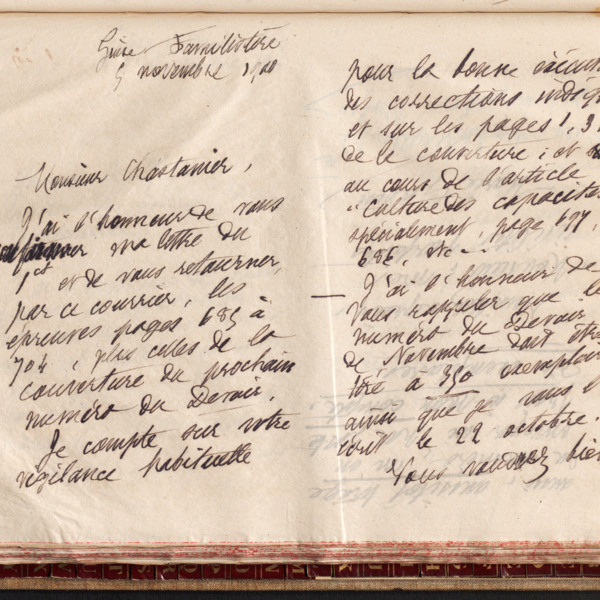 Guise Familistère
5 novembre 1900
Monsieur Chastanier,
J'ai l'honneur de vous
confirmer ma lettre du
1er et de vous retourner,
par ce courrier, les
épreuves pages 685 à
704, plus celles de la
couverture du prochain
numéro du Devoir.
Je compte sur votre
vigilance habituelle
pour la bonne exécu
des corrections indiq
et sur les pages 1, 3
de la couverture; et
au cours de l'article
"Culture des capacités
spécialement, page 697,
686, etc..
J'ai l'honneur de
vous rappeler que le
numéro du Devoir
de Novembre doit être
tiré à 350 exemplair
ainsi que je vous l'
écrit le 22 octobre.
Vous voudrez bien